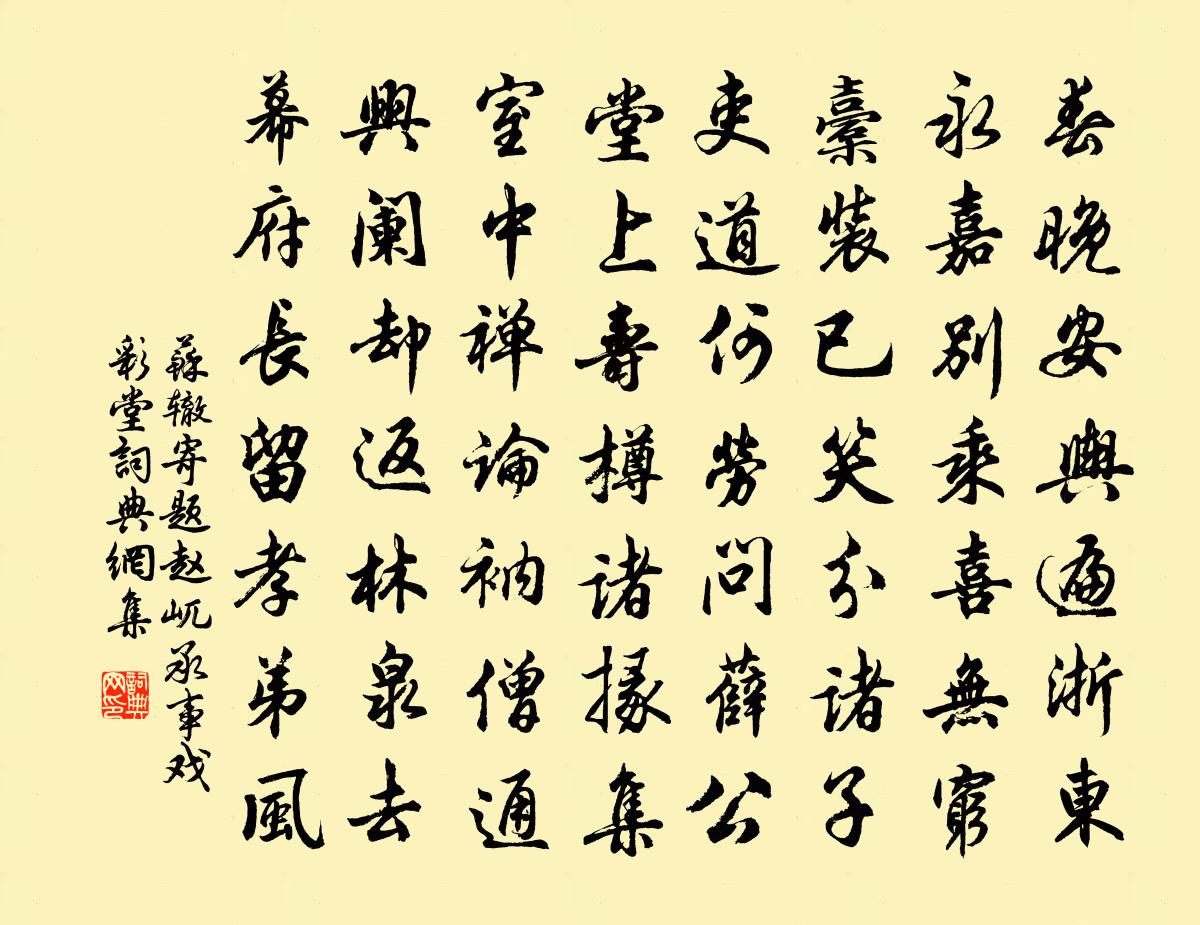 春晚安輿遍浙東
永嘉別乘喜無窮
橐裝已笑分諸子
吏道何勞問薛公
堂上壽樽諸掾集
室中禅論衲僧通
興阑却返林泉去
幕府長留孝弟風
蘇辙寄题赵屼承事戏
彩堂詞典網集
詞典网印